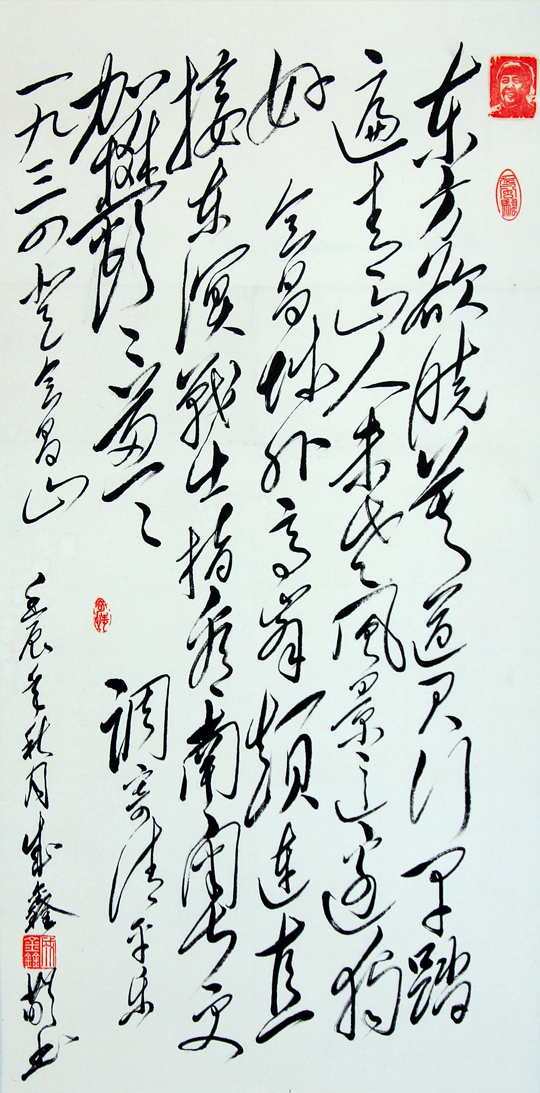 东方欲晓莫道君行早踏
遍青山人未老风景这边独
好 会昌城外高峰颠连直
接东溟戰士指看南粤更
加鬱々葱々 调寄清平乐
一九三四登会昌山 壬辰年秋月成鑫敬书